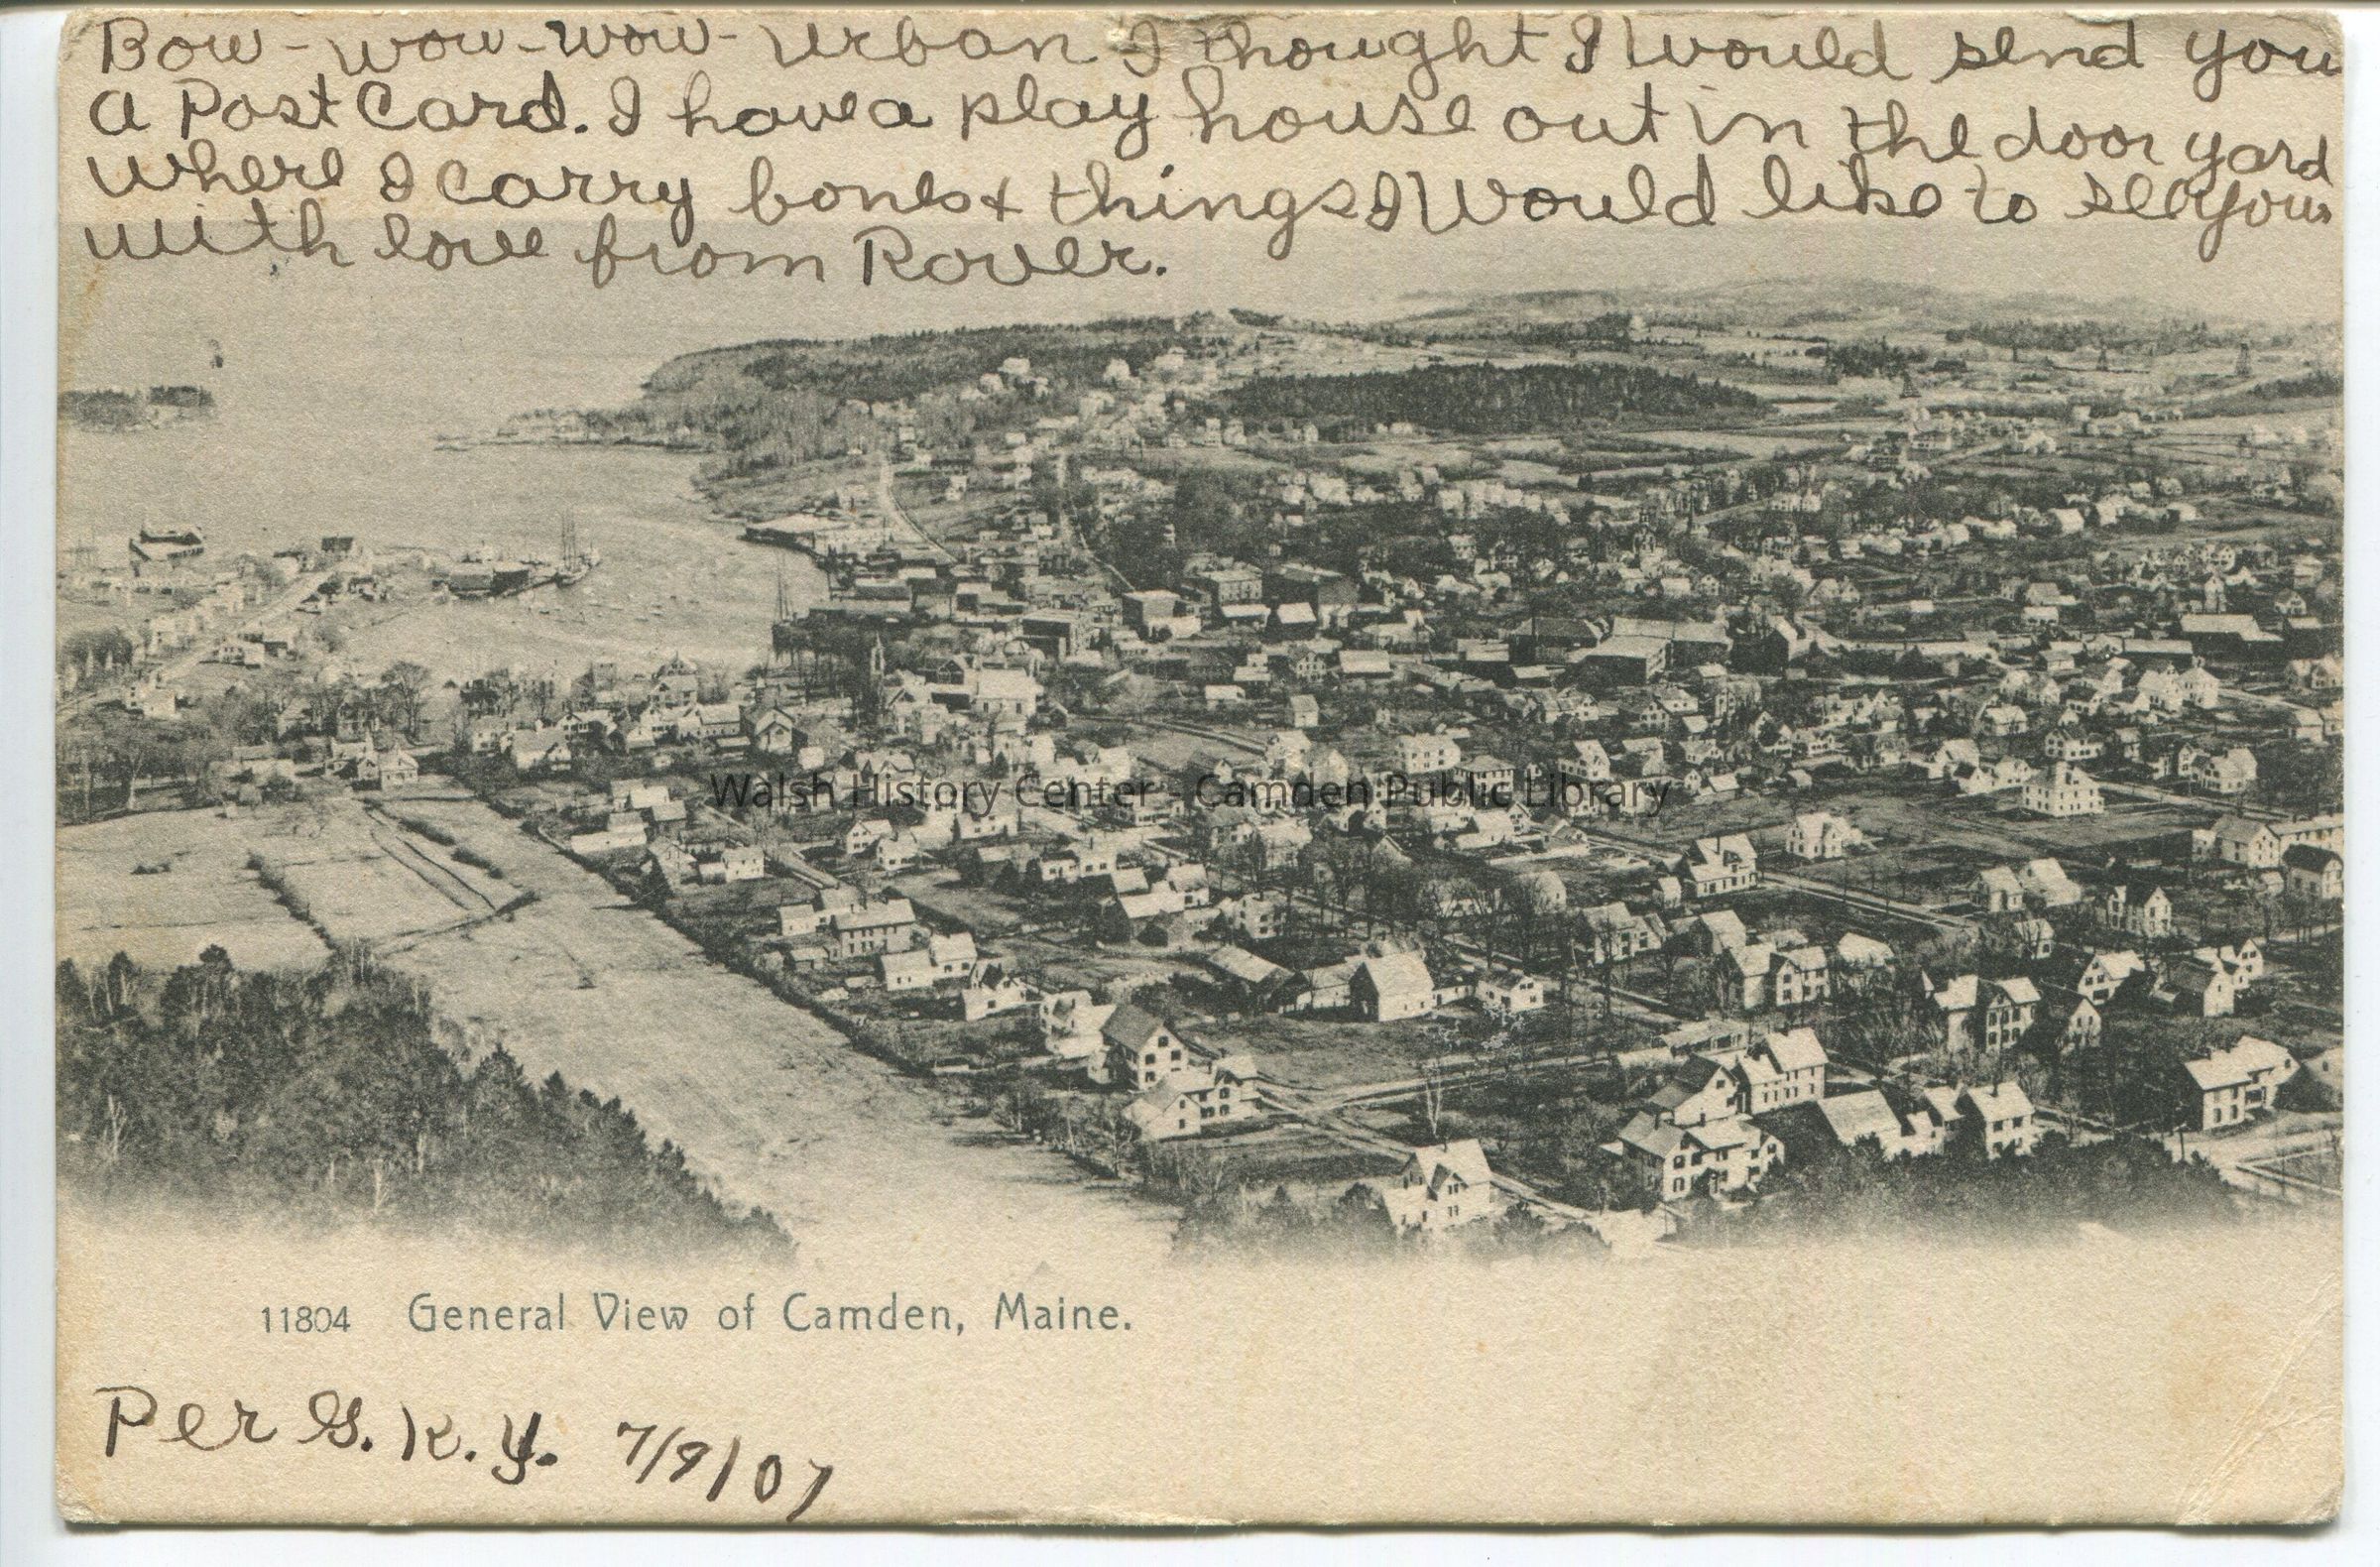 Bow-wow-wow-Urban I thought I would send you
a Post Card. I have a play house out in the door yard
where I carry bones & things I Would like to see you
with love from Rover.
Walsh History Center - Camden Public Library
11804 General View of Camden, Maine.
Per G. K. Y. 7/9/07